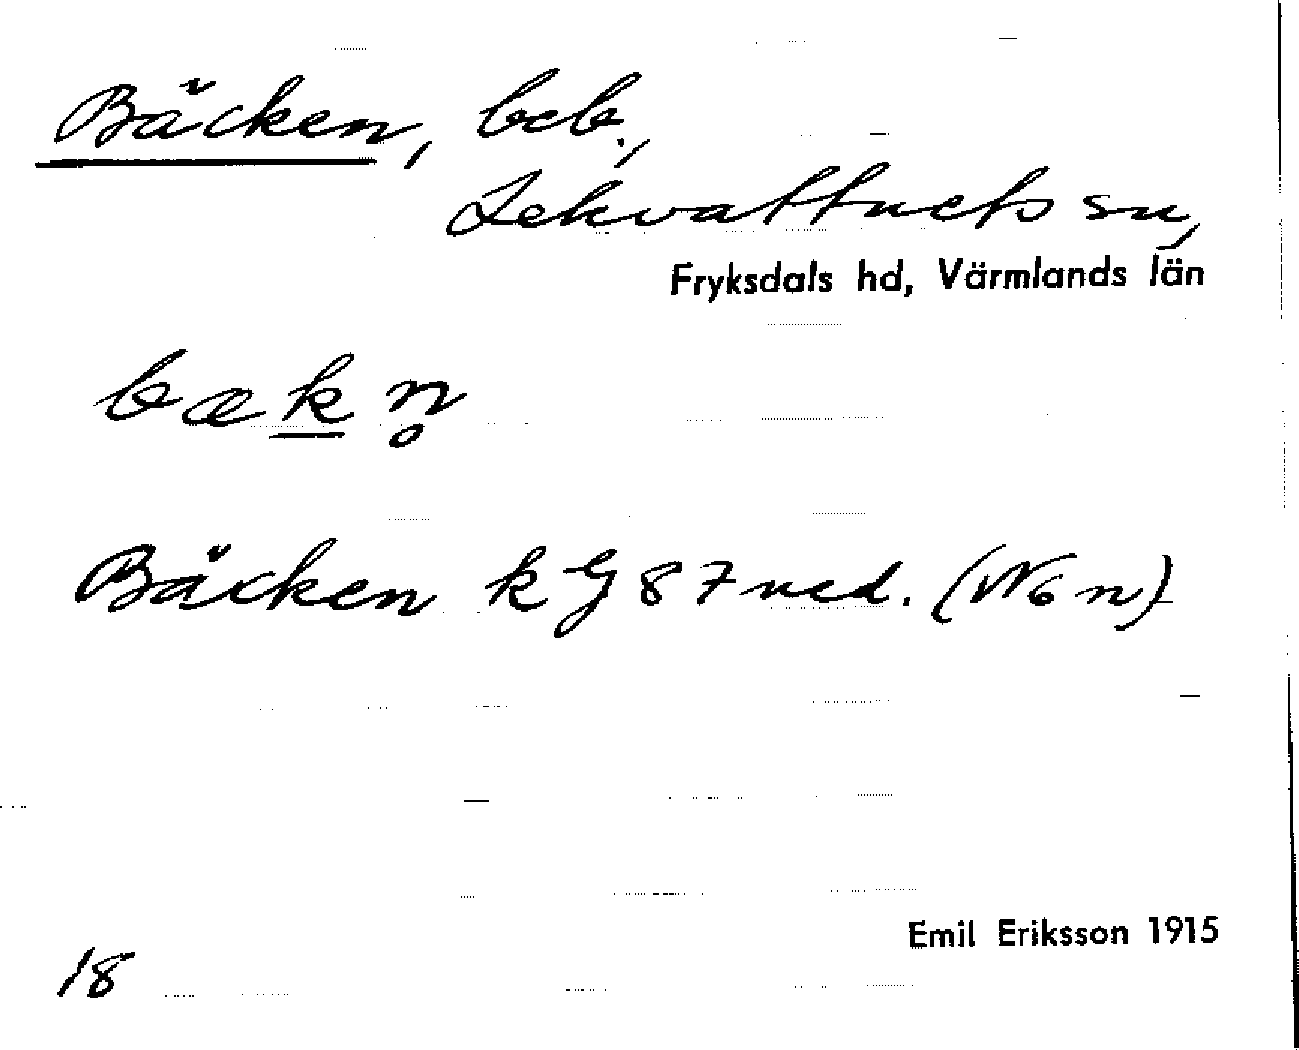 Bäcken, beb.,
Lekvattnets sn,
Fryksdals hd, Värmlands län
bækn̥
Bäcken kG 87 ned. (W6n)
Emil Eriksson 1915
18